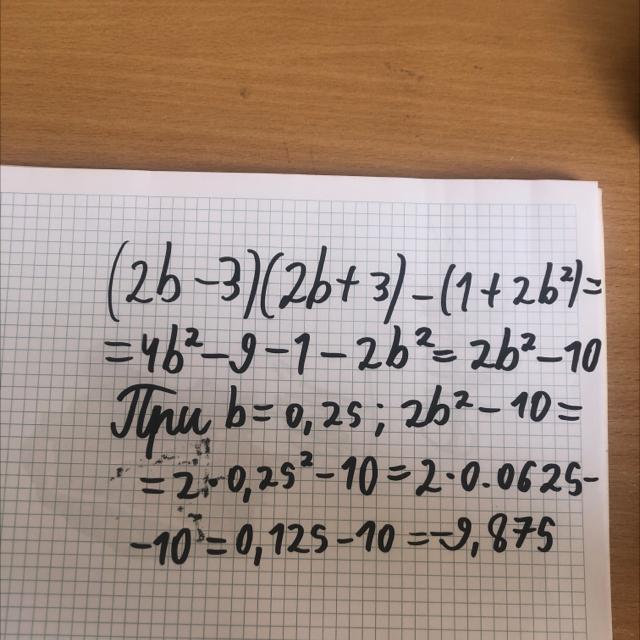 (2b-3)(2b+3)-(1+2b²)=
=4b²-9-1-2b²=2b²-10
При b=0,25; 2b²-10=
=2·0,25²-10=2·0.0625-
-10=0,125-10=-9,875